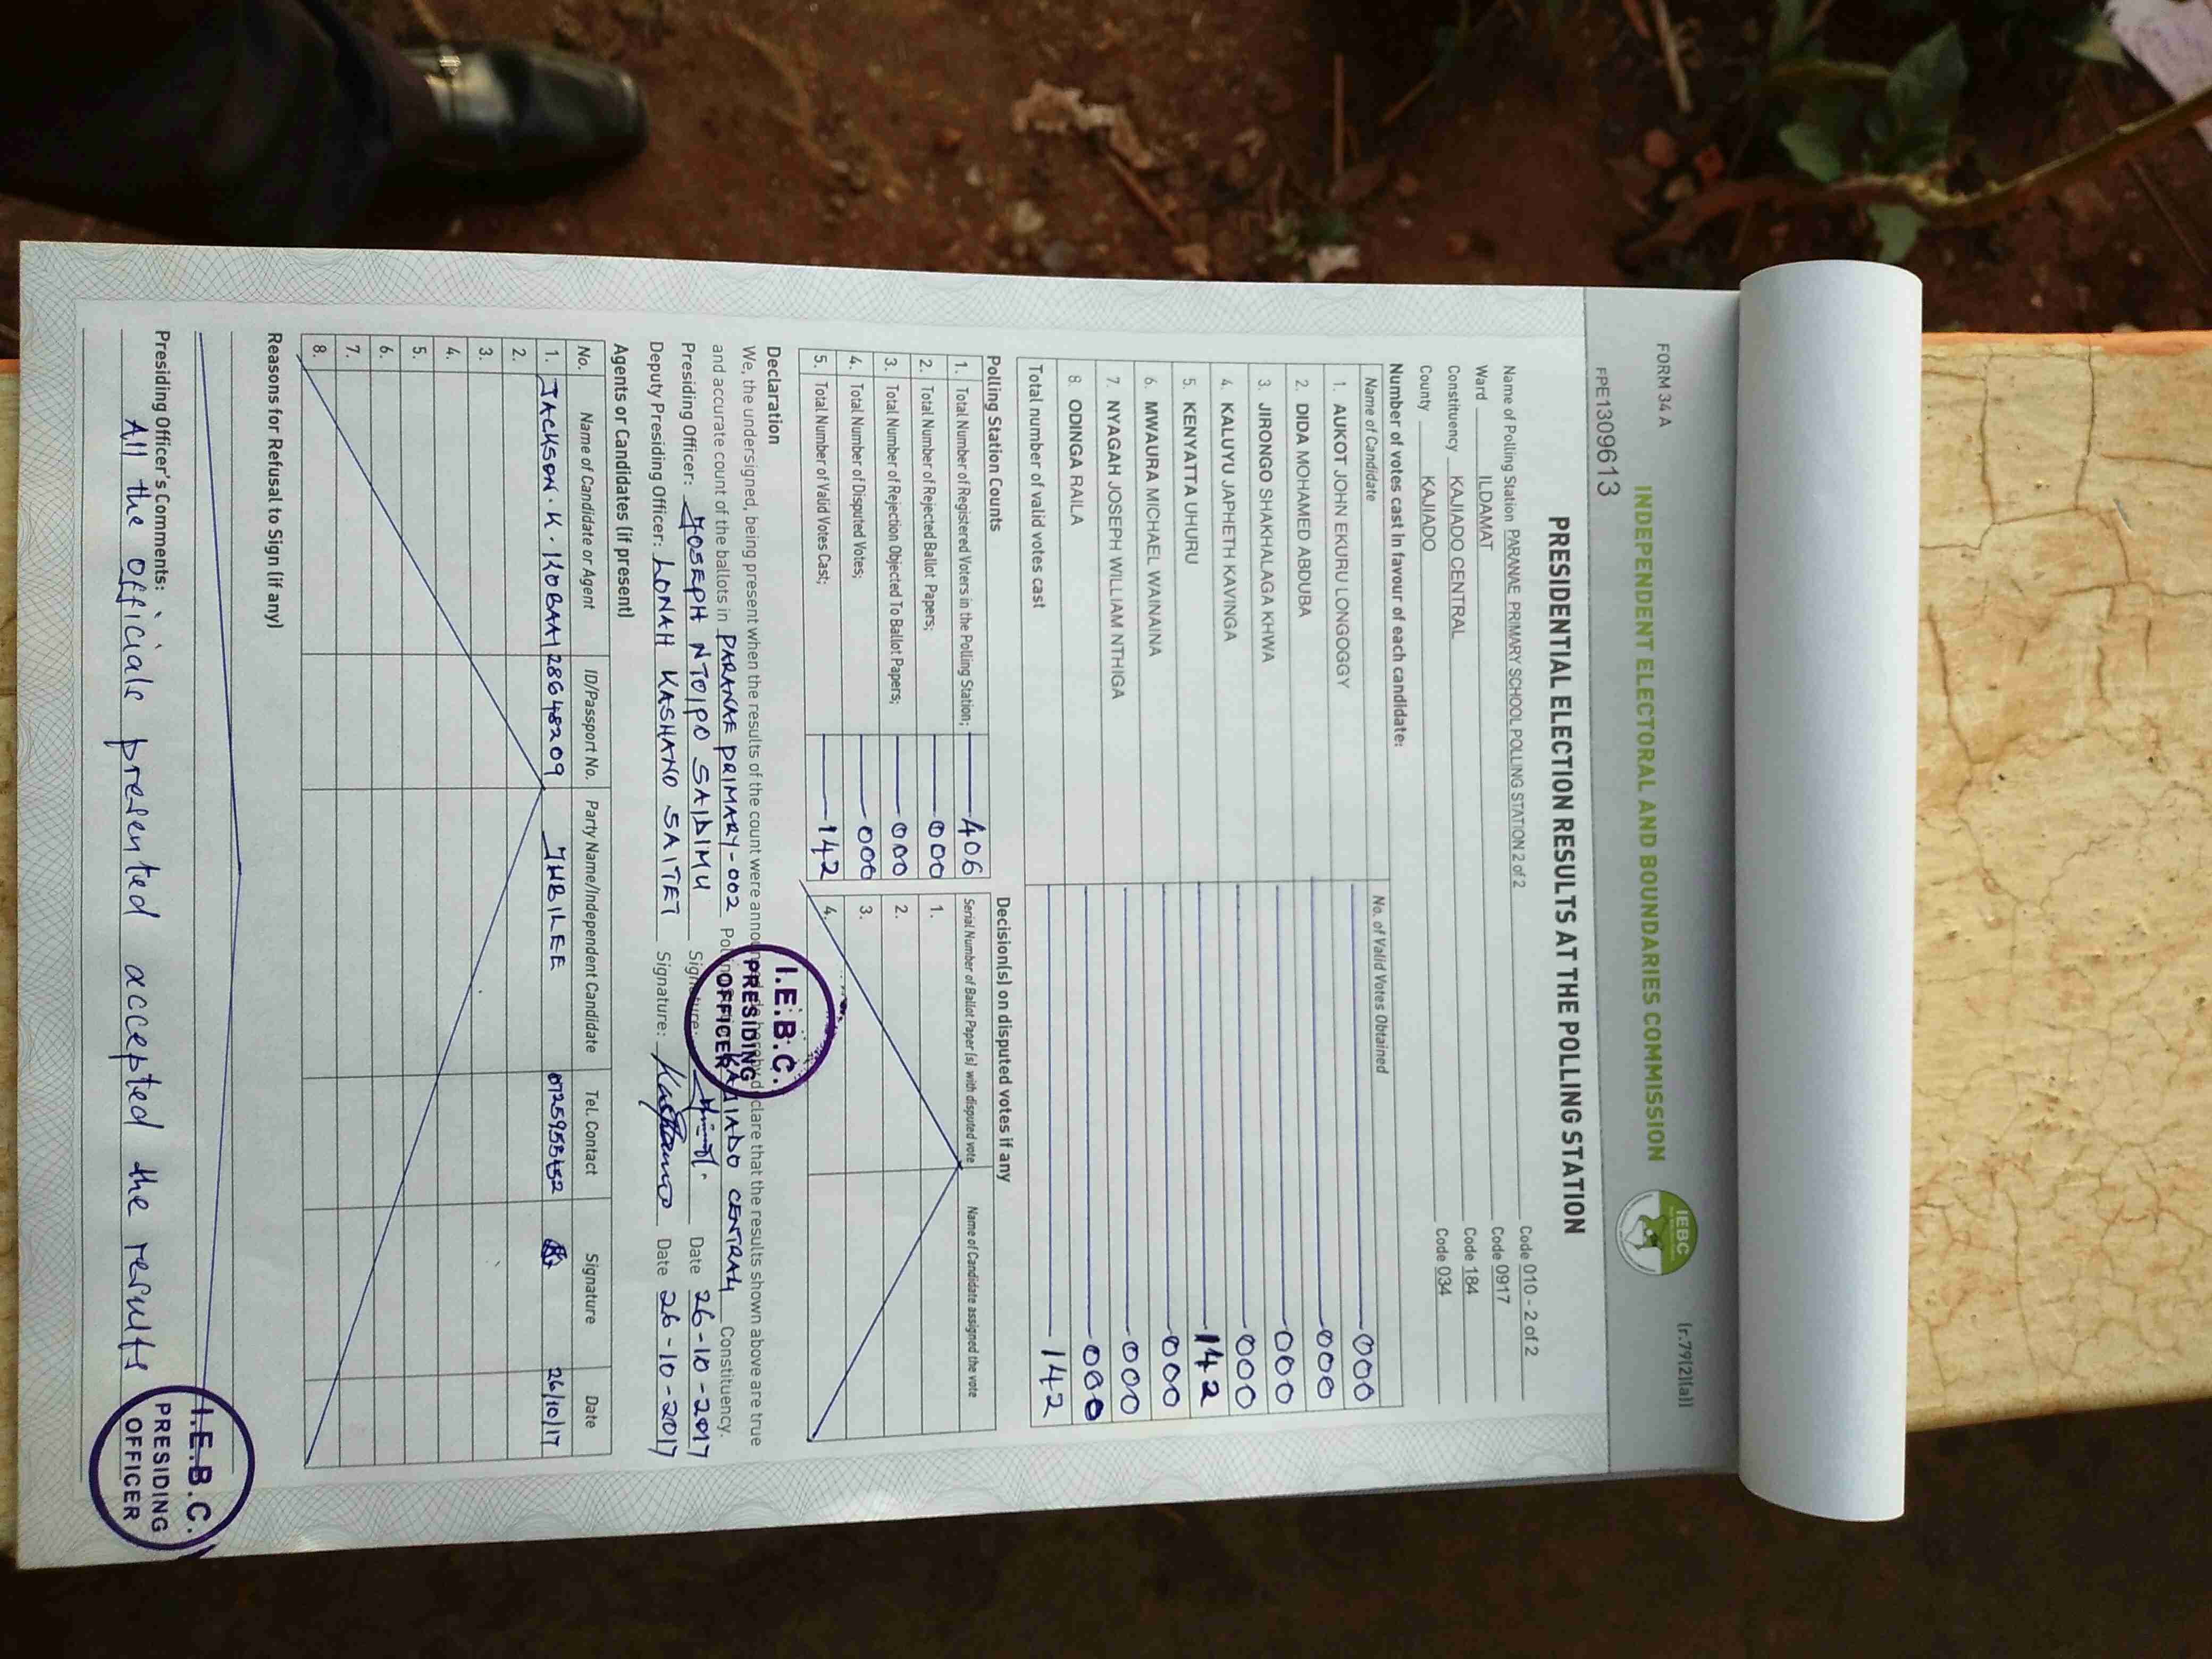 FORM 34 A
(r.79(2)(a))
INDEPENDENT ELECTORAL AND BOUNDARIES COMMISSION
IEBC
FPE1309613
PRESIDENTIAL ELECTION RESULTS AT THE POLLING STATION
Name of Polling Station PARANAE PRIMARY SCHOOL POLLING STATION 2 of 2 Code 010 - 2 of 2
Ward ILDAMAT Code 0917
Constituency KAJIADO CENTRAL Code 184
County KAJIADO Code 034
Number of votes cast in favour of each candidate:
Name of Candidate No. of Valid Votes Obtained
1. AUKOT JOHN EKURU LONGOGGY 000
2. DIDA MOHAMED ABDUBA 000
3. JIRONGO SHAKHALAGA KHWA 000
4. KALUYU JAPHETH KAVINGA 000
5. KENYATTA UHURU 142
6. MWAURA MICHAEL WAINAINA 000
7. NYAGAH JOSEPH WILLIAM NTHIGA 000
8. ODINGA RAILA 000
Total number of valid votes cast 142
Polling Station Counts
1. Total Number of Registered Voters in the Polling Station; 406
2. Total Number of Rejected Ballot Papers; 000
3. Total Number of Rejection Objected To Ballot Papers; 000
4. Total Number of Disputed Votes; 000
5. Total Number of Valid Votes Cast; 142
Decision(s) on disputed votes if any
Serial Number of Ballot Paper (s) with disputed vote Name of Candidate assigned the vote
1.
2.
3.
4.
Declaration
We, the undersigned, being present when the results of the count were announced, do hereby declare that the results shown above are true
and accurate count of the ballots in PARANAE PRIMARY-002 Polling Station KAJIADO CENTRAL Constituency.
Presiding Officer: JOSEPH NTOIPO SAIDIMU Signature: Date 26-10-2017
Deputy Presiding Officer: LONAH KASHANO SAITET Signature: Date 26-10-2017
I.E.B.C.
PRESIDING
OFFICER
Agents or Candidates (if present)
No. Name of Candidate or Agent ID/Passport No. Party Name/Independent Candidate Tel. Contact Signature Date
1. JACKSON.K.KOBAAI 28648209 JUBILEE 26/10/17
2.
3.
4.
5.
6.
7.
8.
Reasons for Refusal to Sign (if any)
Presiding Officer's Comments:
All the officials presented accepted the results
I.E.B.C.
PRESIDING
OFFICER